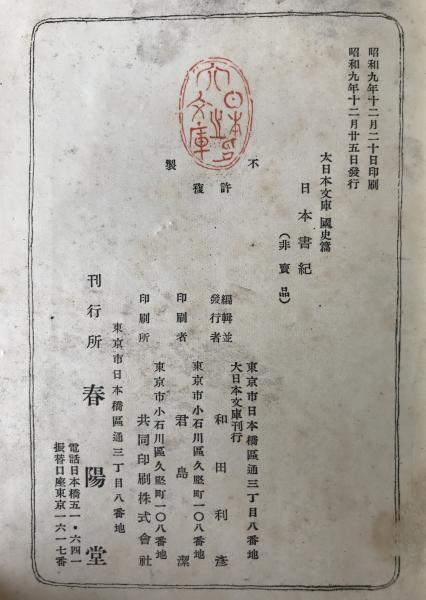 昭和九年十二月二十日印刷
昭和九年十二月廿五日發行
大日本文庫 國史篇
日本書紀
(非賣品)
不許複製
大日本文庫之印
東京市日本橋區通三丁目八番地
大日本文庫刊行
編輯並發行者 和田利彦
東京市小石川區久堅町一〇八番地
印刷者 君島潔
東京市小石川區久堅町一〇八番地
印刷所 共同印刷株式會社
東京市日本橋區通三丁目八番地
刊行所 春陽堂
電話日本橋五一・六四一
振替口座東京一六一七番